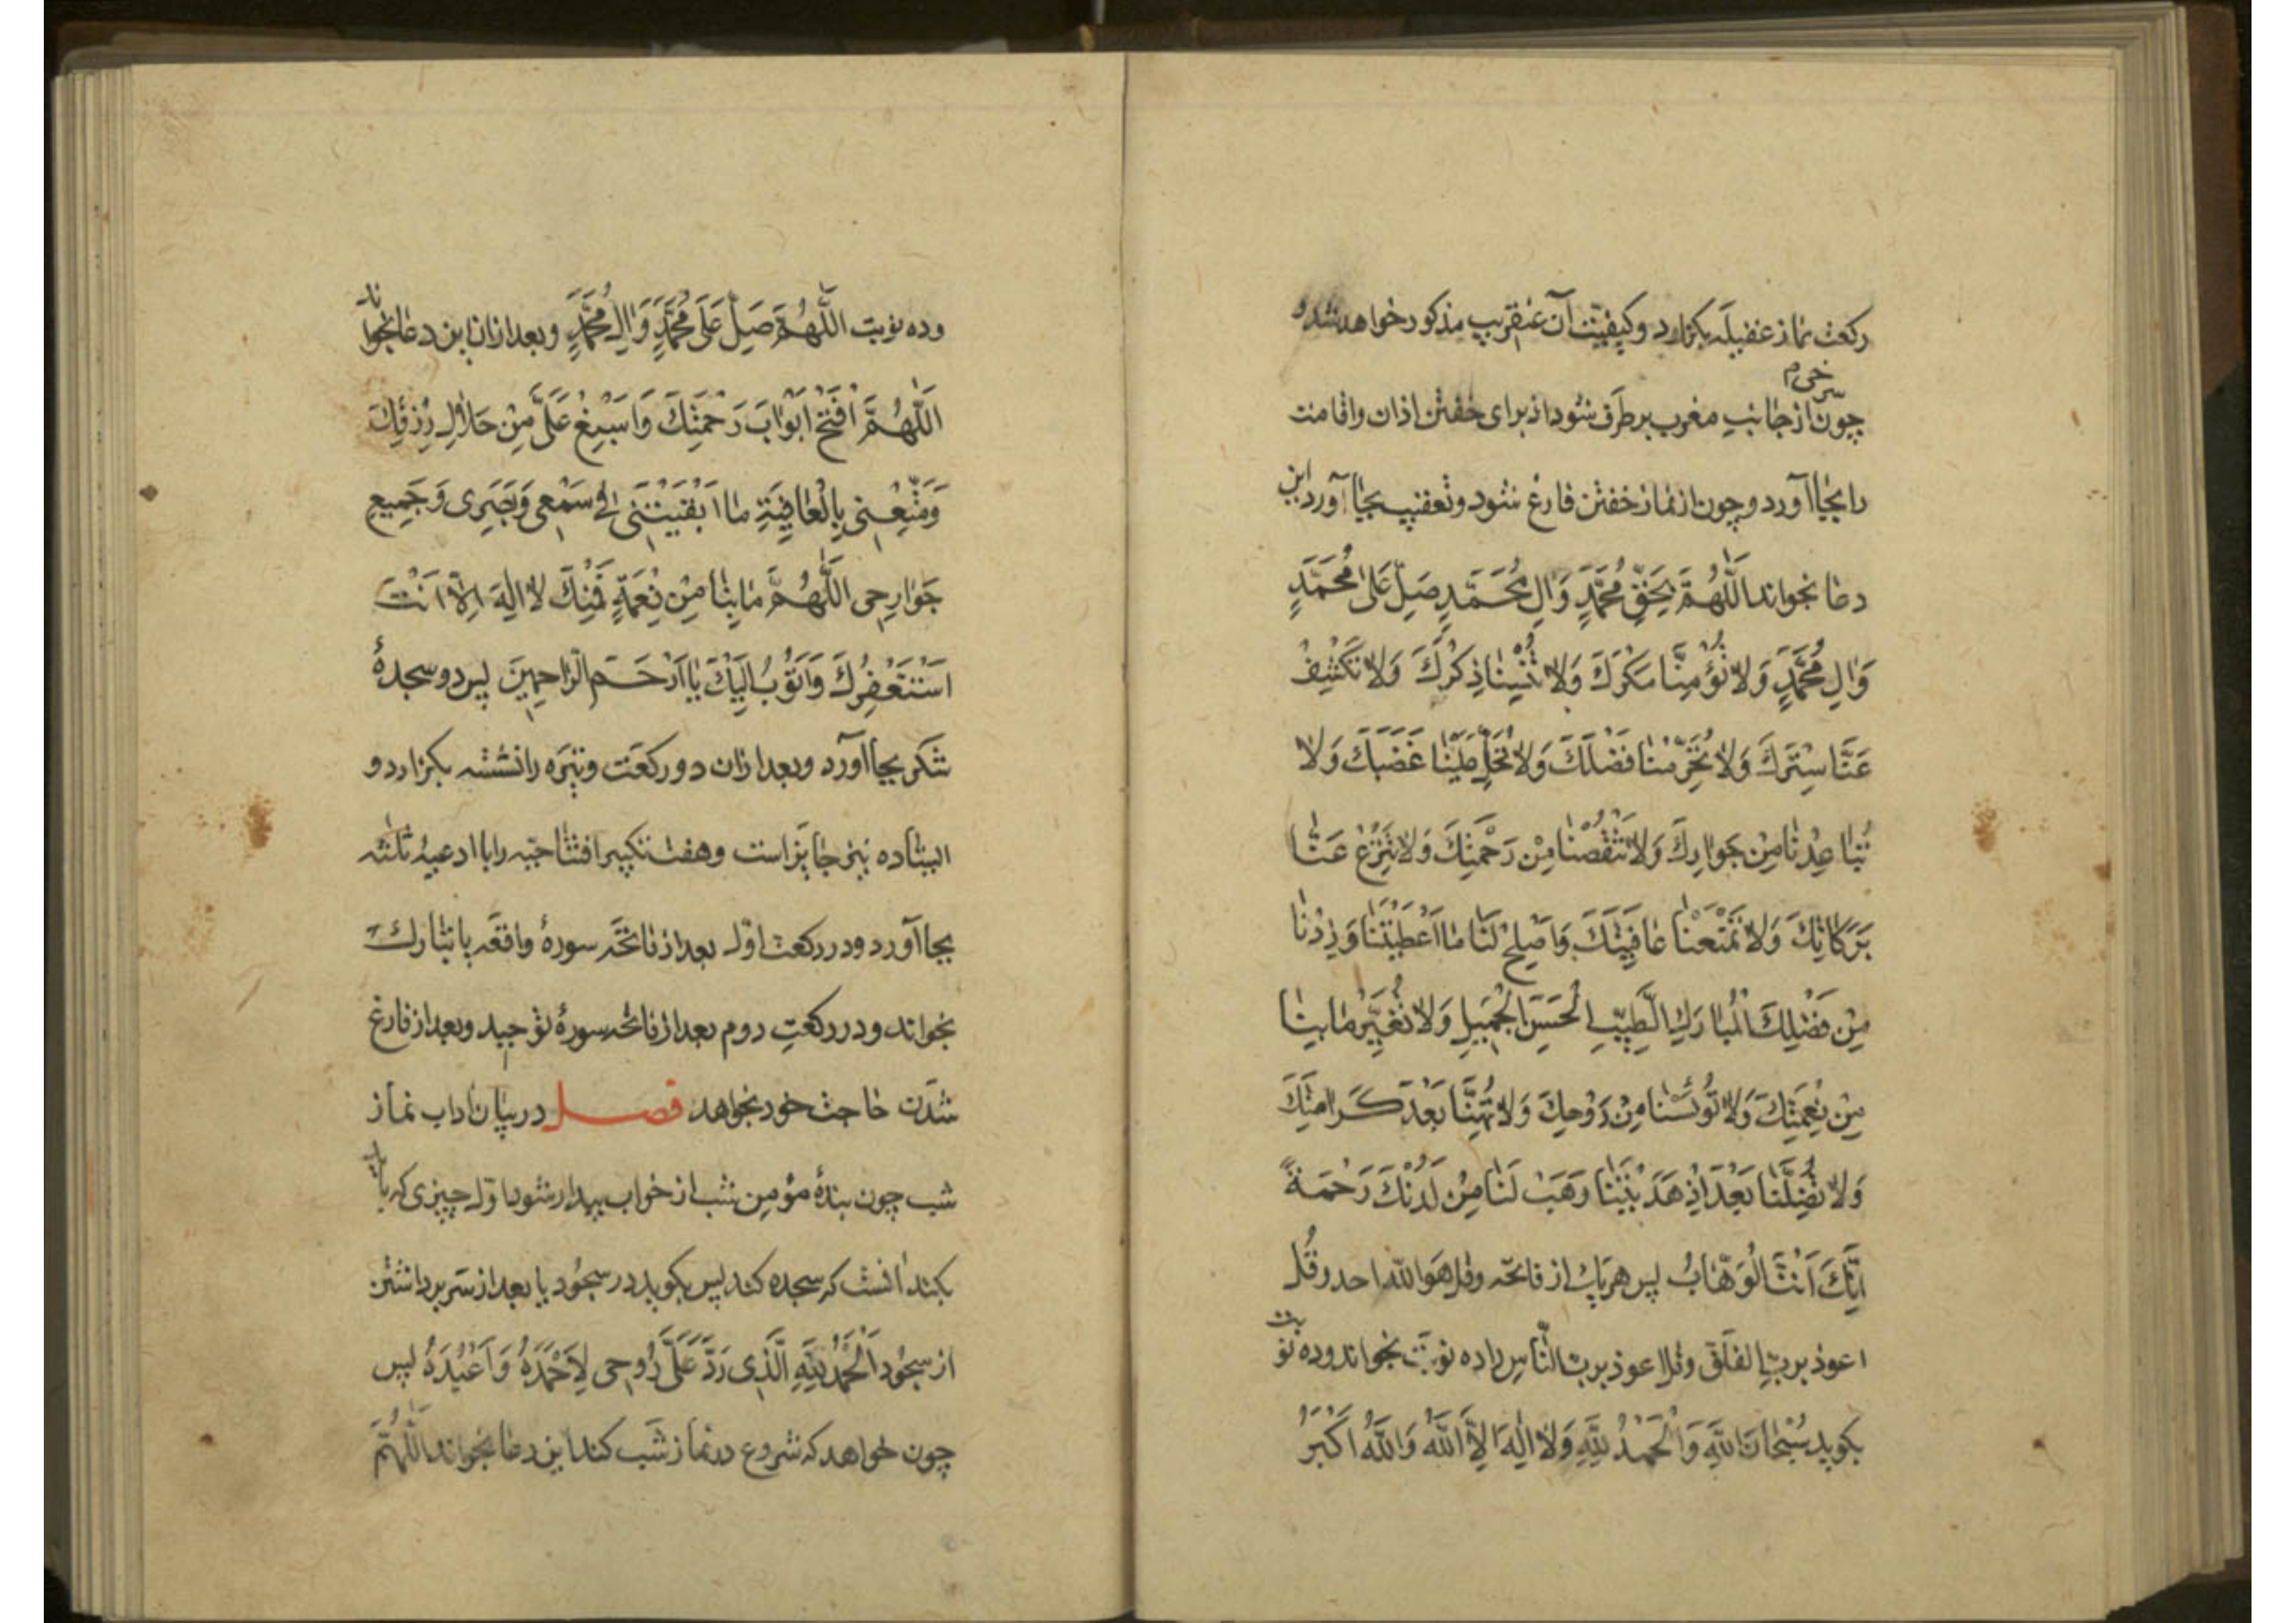 ركعت نماز غفیله بكزارد و كیفیّت آن عنقریب مذكور خواهد شد و
سرخی م
چون از جانب مغرب برطرف شود از برای خفتن اذان و اقامت
را بجا آورد و چون از نماز خفتن فارغ شود و تعقیب بجا آورد این
دعا بخواند اَللّٰهُمَّ بِحَقِّ مُحَمَّدٍ وَاٰلِ مُحَمَّدٍ صَلِّ عَلٰى مُحَمَّدٍ
وَاٰلِ مُحَمَّدٍ وَلاٰ تُؤْمِنَّا مَكْرَكَ وَلاٰ تُنْسِنٰا ذِكْرَكَ وَلاٰ تَكْشِفْ
عَنَّا سِتْرَكَ وَلاٰ تُحَرِّمْنٰا فَضْلَكَ وَلاٰ تُحَلِّلْ عَلَيْنٰا غَضَبَكَ وَلاٰ
تُبٰاعِدْنٰا مِنْ جَوٰارِكَ وَلاٰ تَنْقُصْنٰا مِنْ رَحْمَتِكَ وَلاٰ تَنْزِعْ عَنّٰا
بَرَكٰاتِكَ وَلاٰ تَمْنَعْنٰا عٰافِيَتَكَ وَاَصْلِحْ لَنٰا مٰا اَعْطَيْتَنٰا وَزِدْنٰا
مِنْ فَضْلِكَ الْمُبٰارَكِ الطَّيِّبِ الْحَسَنِ الْجَمِيلِ وَلاٰ تُغَيِّرْ مٰا بِنٰا
مِنْ نِعْمَتِكَ وَلاٰ تُوئْسْنٰا مِنْ رَوْحِكَ وَلاٰ تُهِنَّا بَعْدَ كَرَامَتِكَ
وَلاٰ تُضِلَّنٰا بَعْدَ اِذْ هَدَيْتَنٰا وَهَبْ لَنٰا مِنْ لَدُنْكَ رَحْمَةً
اِنَّكَ اَنْتَ الْوَهّٰابُ پس هریك از فاتحه و قل هو الله احد و قُل
اعوذ بربّ الفلق و قل اعوذ بربّ النّاس را ده نوبت بخواند و ده نوبت
بكوید سُبْحٰانَ اللهِ وَالْحَمْدُ لِلّٰهِ وَلاٰ اِلٰهَ اِلاَّ اللهُ وَاللهُ اَكْبَرُ
و ده نوبت اللّٰهُمَّ صَلِّ عَلٰى مُحَمَّدٍ وَاٰلِ مُحَمَّدٍ و بعد از ان این دعا بخواند
اَللّٰهُمَّ افْتَحْ اَبْوٰابَ رَحْمَتِكَ وَاَسْبِغْ عَلَىَّ مِنْ حَلاٰلِ رِزْقِكَ
وَمَتِّعْنِي بِالْعٰافِيَةِ مٰا اَبْقَيْتَنِي فِي سَمْعِي وَبَصَرِي وَجَمِيعِ
جَوٰارِحِي اللّٰهُمَّ مٰا بِنٰا مِنْ نِعْمَةٍ فَمِنْكَ لاٰ اِلٰهَ اِلاّٰ اَنْتَ
اَسْتَغْفِرُكَ وَاَتُوبُ اِلَيْكَ يٰا اَرْحَمَ الرّٰاحِمِينَ پس دو سجدۀ
شكر بجا آورد و بعد از ان دو ركعت وتیره را نشسته بكزارد و
ایستاده نیز جایز است و هفت تكبیر افتتاحیّه را با ادعیۀ ثلٰثه
بجا آورد و در ركعت اوّل بعد از فاتحه سورۀ واقعه یا تبارك
بخواند و در ركعت دوم بعد از فاتحه سورۀ توحید و بعد از فارغ
شدن حاجت خود بخواهد فصل در بیان اداب نماز
شب چون بندۀ مؤمن شب از خواب بیدار شود اوّل چیزی كه باید
بكند انست كه سجده كند پس بكوید در سجود یا بعد از سر برداشتن
از سجود اَلْحَمْدُ لِلّٰهِ الَّذِي رَدَّ عَلَىَّ رُوحِي لِاَحْمَدَهُ وَاَعْبُدَهُ پس
چون خواهد كه شروع در نماز شب كند این دعا بخواند اَللّٰهُمَّ